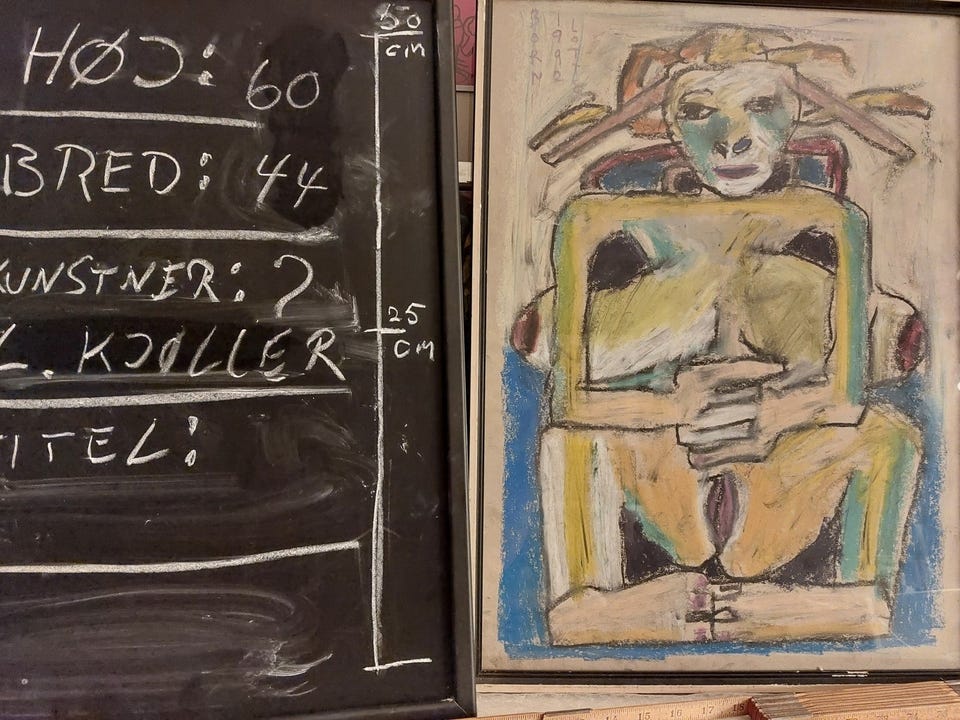 HØJ: 60
BRED: 44
KUNSTNER: ?
L. KJØLLER
TITEL:
50
cm
25
cm
15 16 17